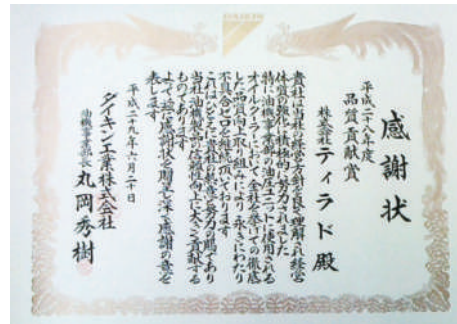 感謝状
平成二八年度
品質貢献賞
株式会社ティラド殿
貴社は当社の経営方針を良く理解され経営
体質の強化に積極的に努力されました
特に油機事業部の油圧ユニットに使用される
オイルクーラにおいて全社を挙げての徹底
した品質向上取り組みにより永きにわたり
不具合ゼロを継続頂いております
これはひとえに貴社の経営努力の賜であり
当社油機製品の品質向上に大きく貢献する
ものであります
よって茲に感謝状を贈呈し深く感謝の意を
表します
平成二九年六月二十日
ダイキン工業株式会社
油機事業部長 丸岡秀樹